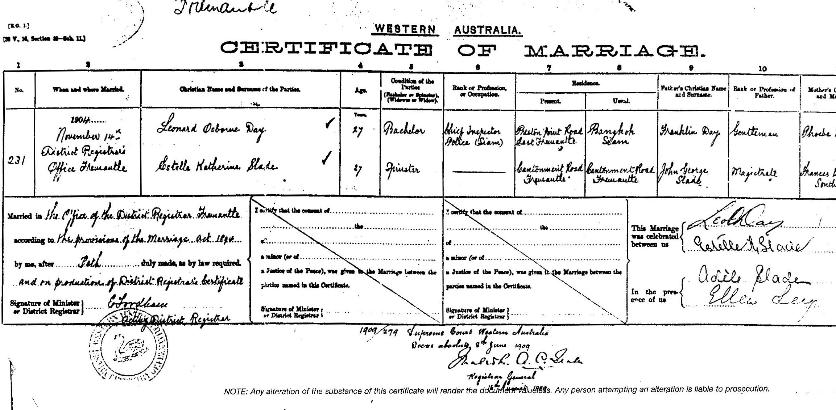 Fremantle
[R.G. 1.]
WESTERN AUSTRALIA.
CERTIFICATE OF MARRIAGE.
1 2 3 4 5 6 7 8 9 10
No. When and where Married. Christian Name and Surname of the Parties. Age. Condition of the Parties (Bachelor or Spinster), (Widower or Widow). Rank or Profession, or Occupation. Residence. Present. Usual. Father's Christian Name and Surname. Rank or Profession of Father.
Years.
1904
November 14th Leonard Osborne Day 27 Bachelor Chief Inspector Police (Siam) Preston Point Road East Fremantle Bangkok Siam Franklin Day Gentleman Phoebe
231 District Registrar's Office Fremantle Estelle Katherine Slade 27 Spinster Cantonment Road Fremantle Cantonment Road Fremantle John George Slade Magistrate Frances
Married in the Office of the District Registrar, Fremantle
according to the provisions of the Marriage Act 1894
by me, after Oath duly made, as by law required.
and on production of District Registrar's Certificate
Signature of Minister or District Registrar
District Registrar
I certify that the consent of
the
of
a minor (or of
a Justice of the Peace), was given to the Marriage between the
parties named in this Certificate.
Signature of Minister or District Registrar
I certify that the consent of
the
of
a minor (or of
a Justice of the Peace), was given to the Marriage between the
parties named in this Certificate.
Signature of Minister or District Registrar
This Marriage was celebrated between us
In the presence of us
Adele Slade
Ellen Ley
1909/279 Supreme Court Western Australia
Decree absolute 8th June 1909
Registrar General
NOTE: Any alteration of the substance of this certificate will render the document valueless. Any person attempting an alteration is liable to prosecution.